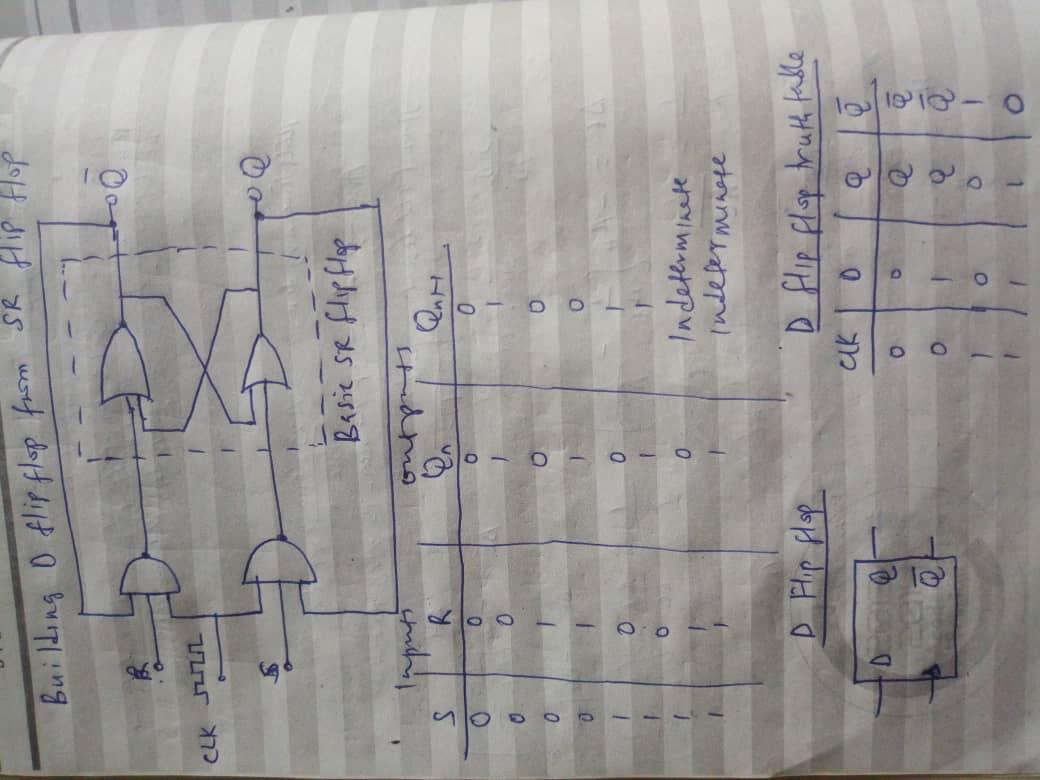 Building D flip flop from SR flip flop
R
Q̅
CLK
S
Q
Basic SR flip flop
Inputs outputs
S R Qn Qn+1
0 0 0 0
0 0 1 1
0 1 0 0
0 1 1 0
1 0 0 1
1 0 1 1
1 1 0 Indeterminate
1 1 1 Indeterminate
D Flip flop
D Q
Q̅
D flip flop truth table
CLK D Q Q̅
0 0 Q Q̅
0 1 Q Q̅
1 0 0 1
1 1 1 0